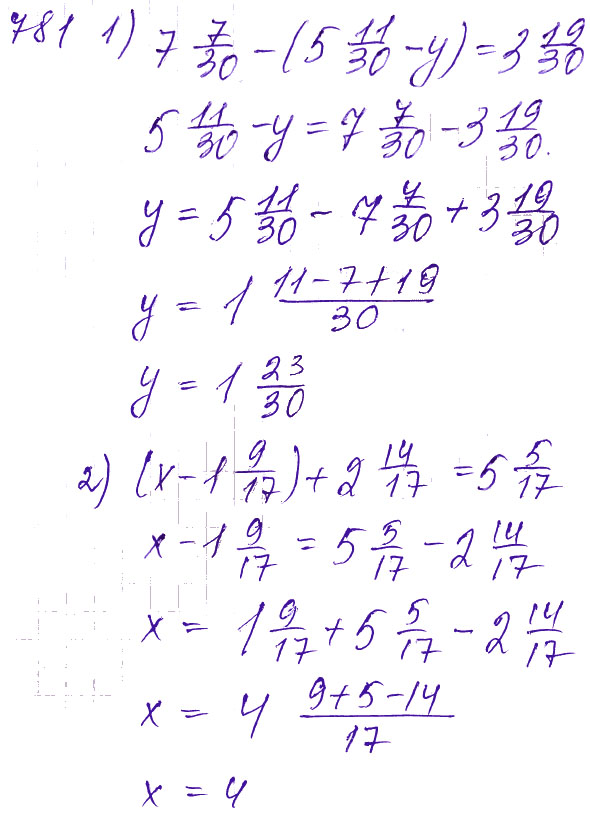 781 1) 7 7/30 - (5 11/30 - y) = 3 19/30
5 11/30 - y = 7 7/30 - 3 19/30.
y = 5 11/30 - 7 7/30 + 3 19/30
y = 1 (11 - 7 + 19)/30
y = 1 23/30
2) (x - 1 9/17) + 2 14/17 = 5 5/17
x - 1 9/17 = 5 5/17 - 2 14/17
x = 1 9/17 + 5 5/17 - 2 14/17
x = 4 (9 + 5 - 14)/17
x = 4